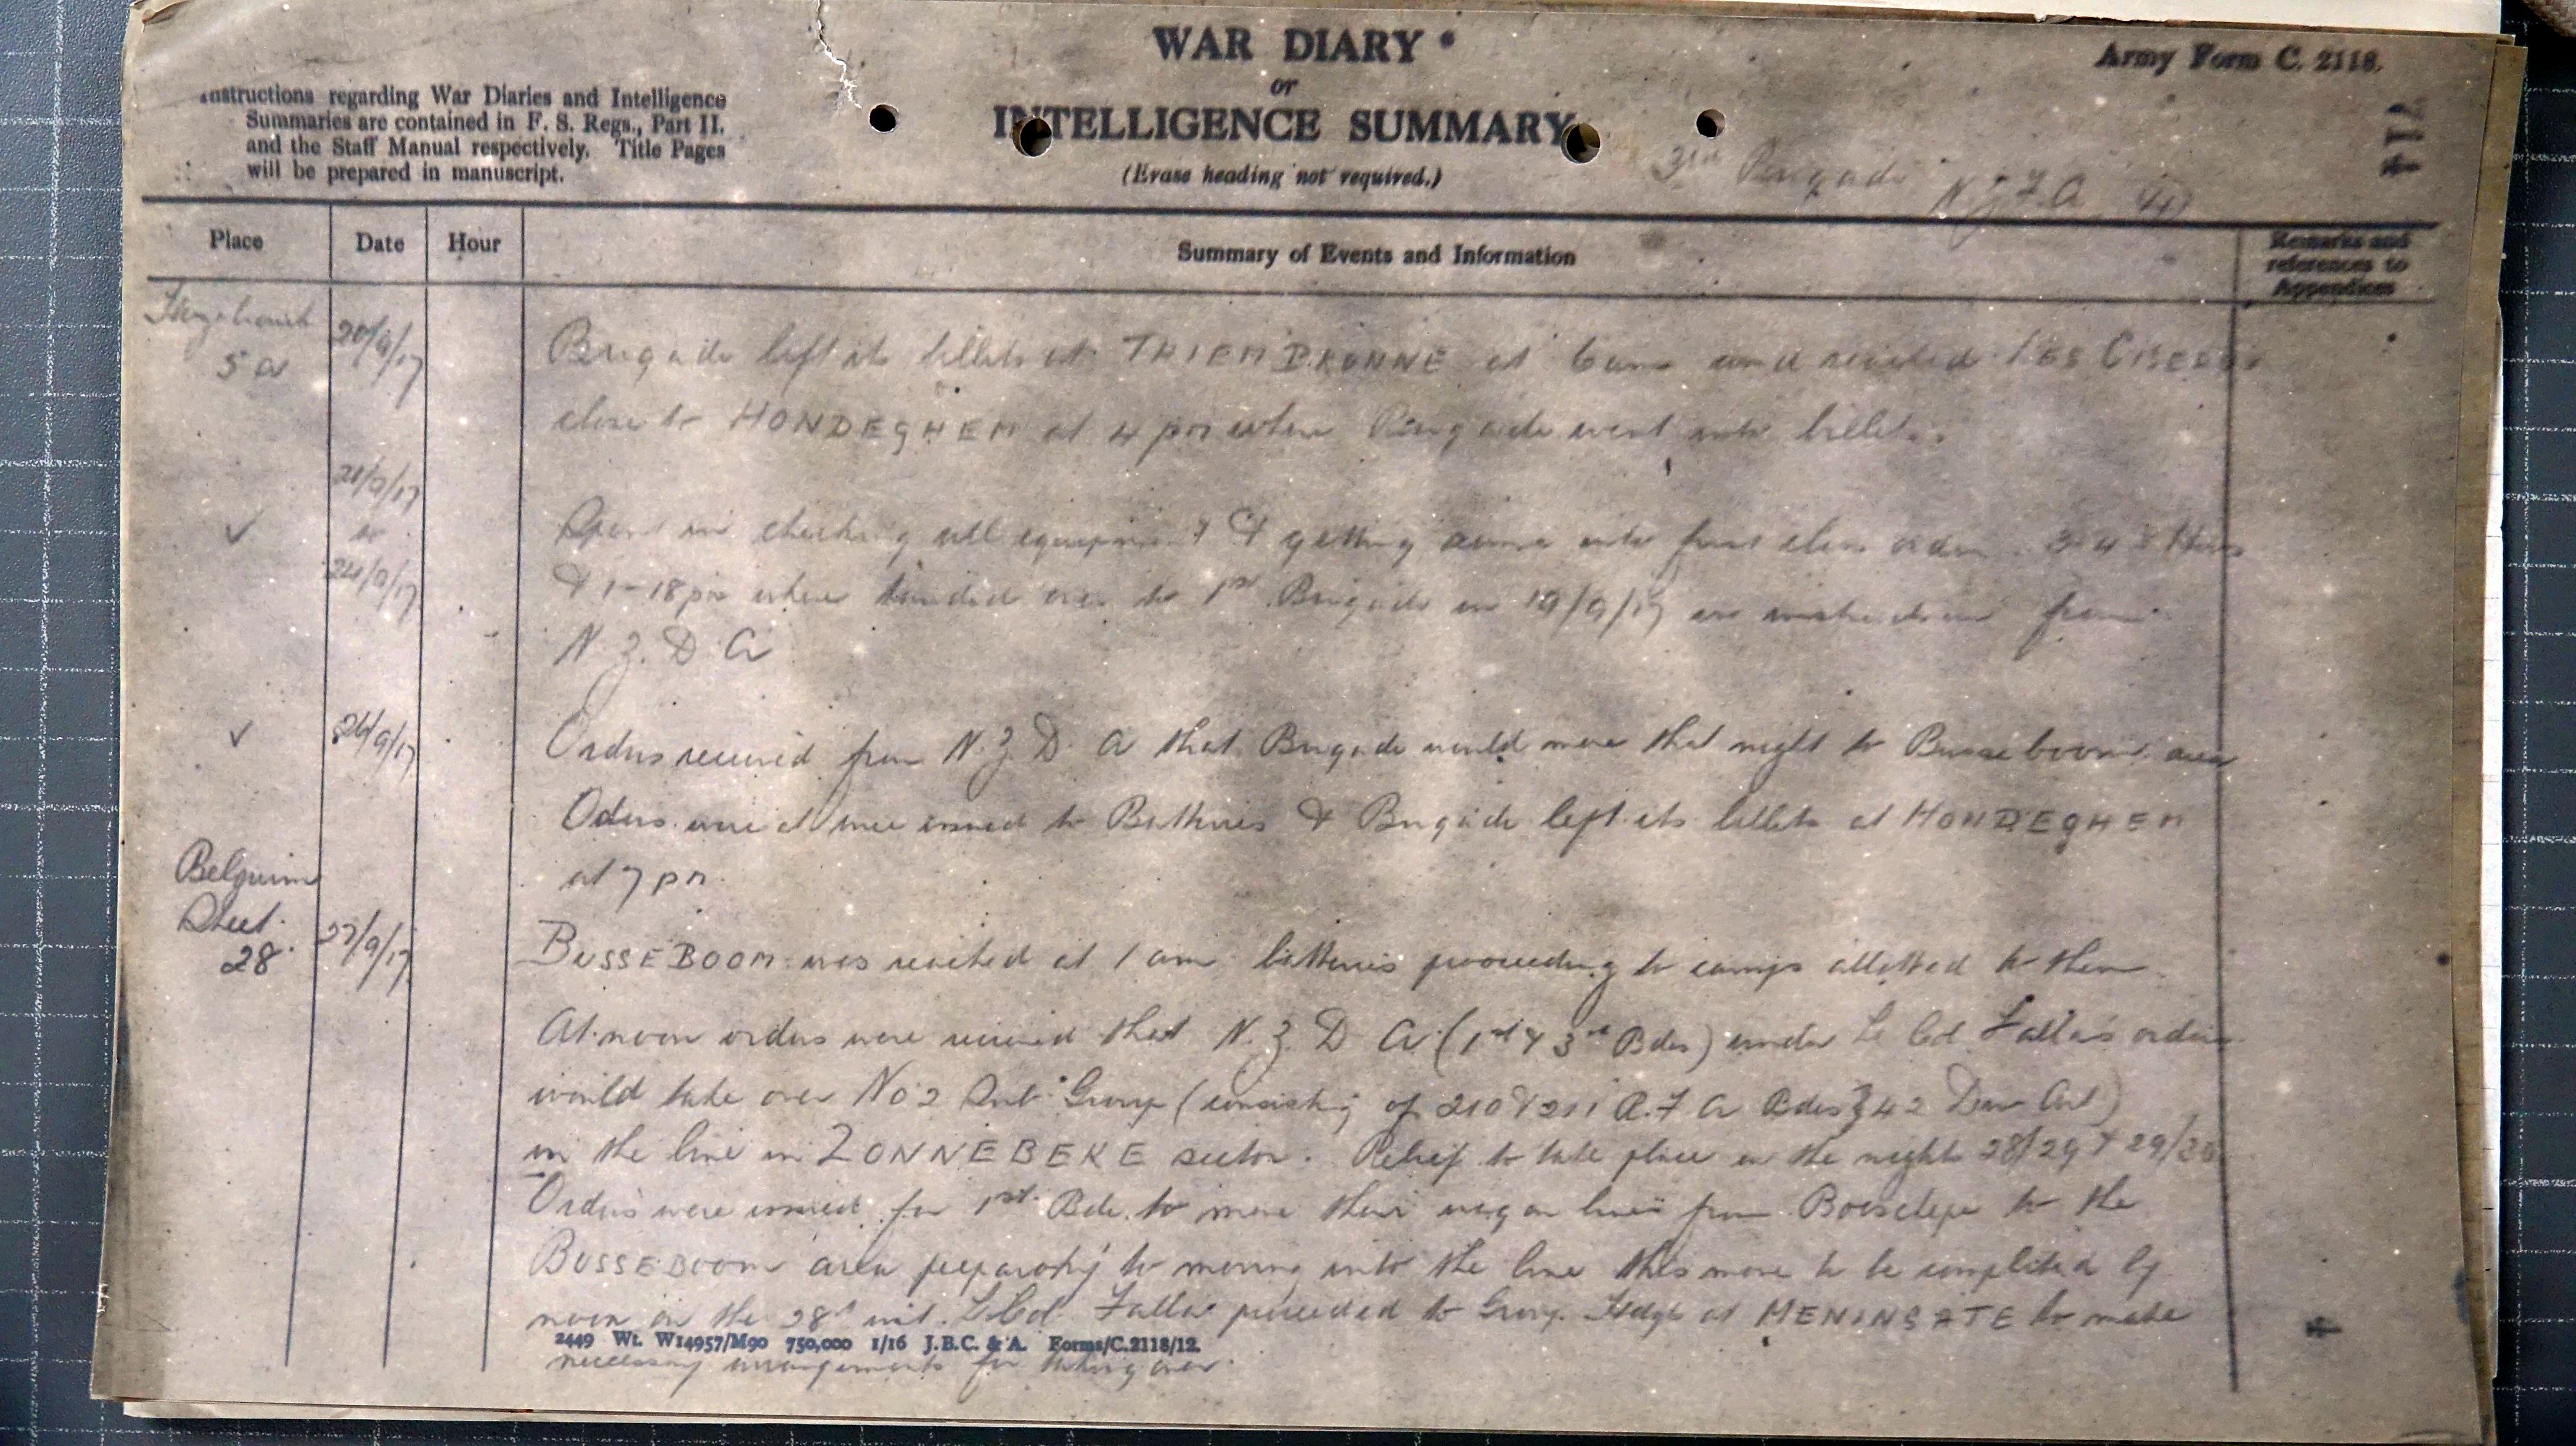 WAR DIARY
Army Form C. 2118.
or
INTELLIGENCE SUMMARY
(Erase heading not required.)
Instructions regarding War Diaries and Intelligence
Summaries are contained in F. S. Regs., Part II.
and the Staff Manual respectively. Title Pages
will be prepared in manuscript.
3rd Brigade N Z F A
Place
Date
Hour
Summary of Events and Information
Remarks and
references to
Appendices
Hazebrouck
5 a
20/9/17
Brigade left its billets at THIEMBRONNE at 6 am and reached LES
close to HONDEGHEM at 4 pm where Brigade went into billets.
21/9/17
to
24/9/17
✓
Spent in checking all equipment & getting same into first class order.
& 1-18 pr where handed over to 1st Brigade on 19/9/17 on instructions from
N. Z. D A
✓
26/9/17
Orders received from N. Z. D. A that Brigade would move that night to Busseboom area
Oders were at once issued to Batteries & Brigade left its billets at HONDEGHEM
at 7 pm
Belguim
Sheet
28
27/9/17
BUSSEBOOM was reached at 1 am batteries proceeding to camps allotted to them
At noon orders were received that N. Z. D A (1st & 3rd Bdes) under Lt Col Falla's orders
would take over No 2 Group (consisting of 210 & 211 R. F A Bdes 42 Div Art)
in the line in ZONNEBEKE sector. Relief to take place on the nights 28/29 & 29/30
Orders were issued for 1st Bde. to move their wagon lines from Boeschepe to the
BUSSEBOOM area preparatory to moving into the line this move to be completed by
noon on the 28th inst. Lt Col Falla proceeded to Group Hdqs at MENINGATE to make
2449 Wt. W14957/M90 750,000 1/16 J.B.C. & A. Forms/C.2118/12.
necessary arrangements for taking over.